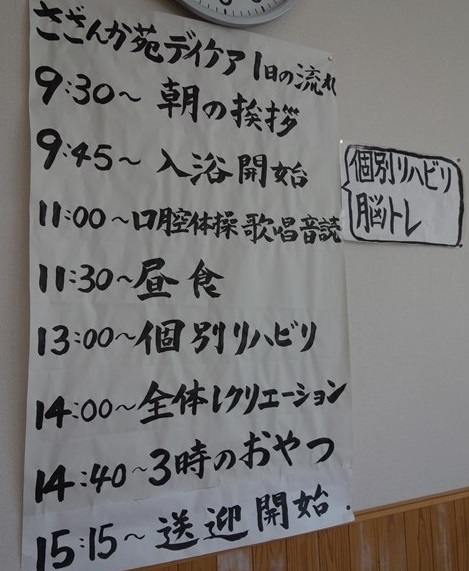 さざんか苑デイケア 1日の流れ
9:30～ 朝の挨拶
9:45～ 入浴開始
個別リハビリ
脳トレ
11:00～口腔体操 歌唱音読
11:30～昼食
13:00～個別リハビリ
14:00～全体レクリエーション
14:40～3時のおやつ
15:15～送迎開始